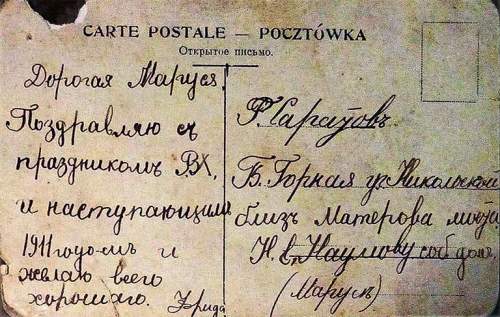 CARTE POSTALE — POCZTÓWKA
Открытое письмо.
Дорогая Маруся,
Поздравляю съ
праздникомъ Р.Х.,
и наступающимъ
1911 годомъ и
желаю всего
хорошаго. Фрида
Г. Саратовъ.
Б. Горная уг. Никольской
близъ Матерова
Н. Е. Наумову соб. домъ,
(Марусѣ)